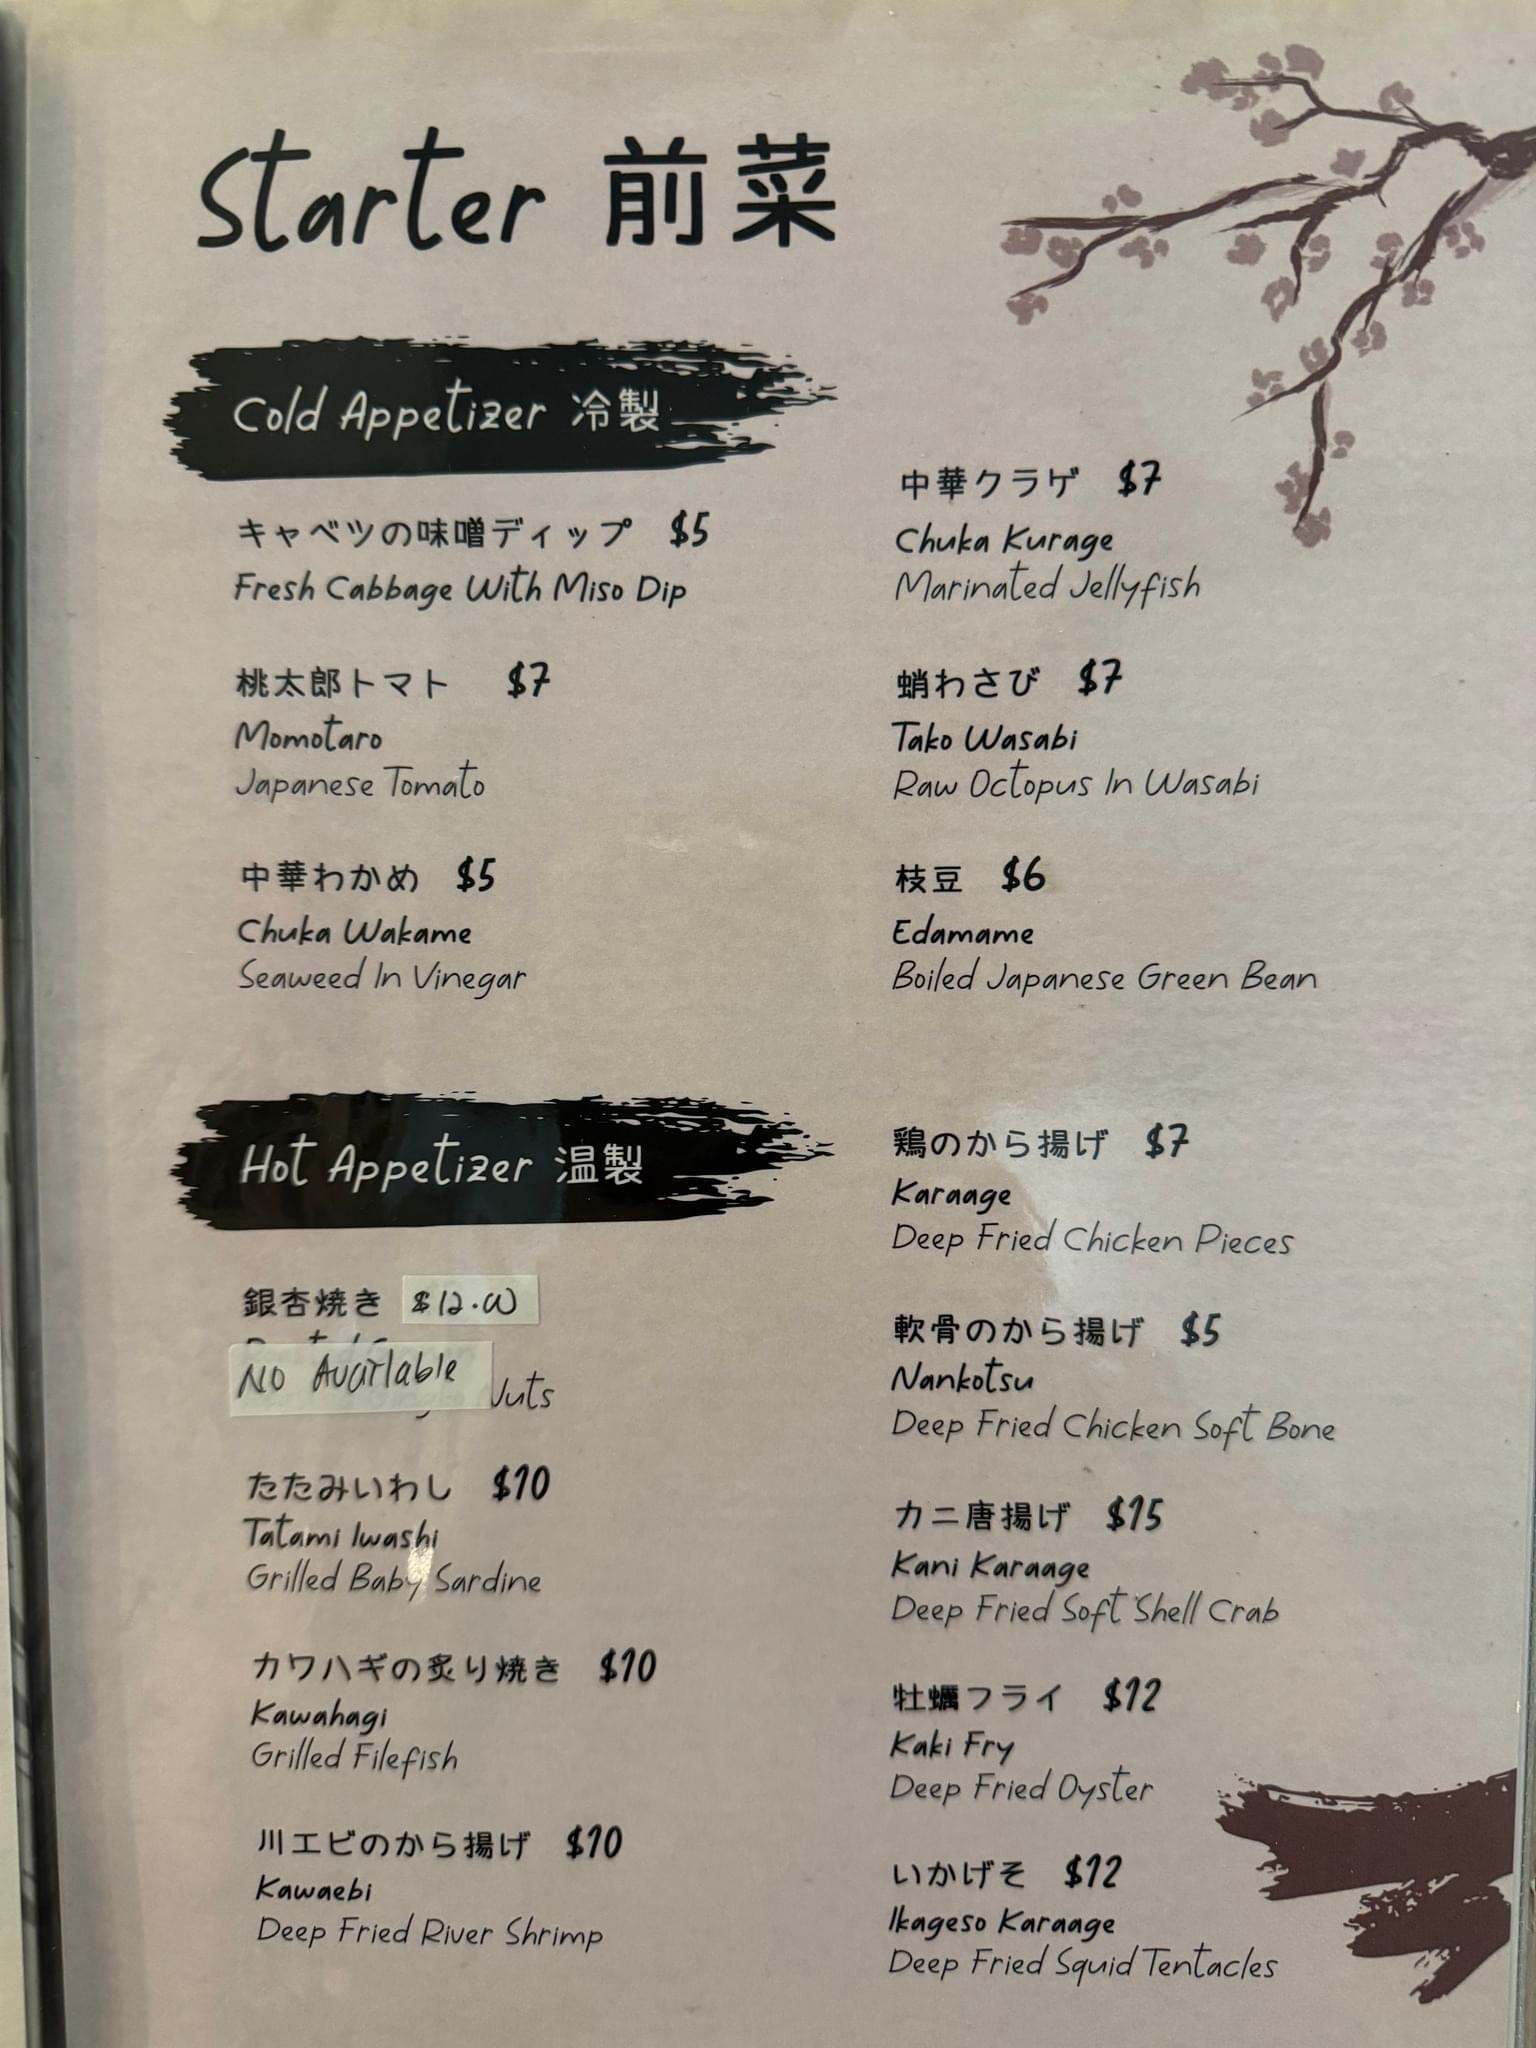 Starter 前菜
Cold Appetizer 冷製
キャベツの味噌ディップ $5
Fresh Cabbage With Miso Dip
桃太郎トマト $7
Momotaro
Japanese Tomato
中華わかめ $5
Chuka Wakame
Seaweed In Vinegar
中華クラゲ $7
Chuka Kurage
Marinated Jellyfish
蛸わさび $7
Tako Wasabi
Raw Octopus In Wasabi
枝豆 $6
Edamame
Boiled Japanese Green Bean
Hot Appetizer 温製
銀杏焼き $12.00
No Available
たたみいわし $10
Tatami Iwashi
Grilled Baby Sardine
カワハギの炙り焼き $10
Kawahagi
Grilled Filefish
川エビのから揚げ $10
Kawaebi
Deep Fried River Shrimp
鶏のから揚げ $7
Karaage
Deep Fried Chicken Pieces
軟骨のから揚げ $5
Nankotsu
Deep Fried Chicken Soft Bone
カニ唐揚げ $15
Kani Karaage
Deep Fried Soft Shell Crab
牡蠣フライ $12
Kaki Fry
Deep Fried Oyster
いかげそ $12
Ikageso Karaage
Deep Fried Squid Tentacles